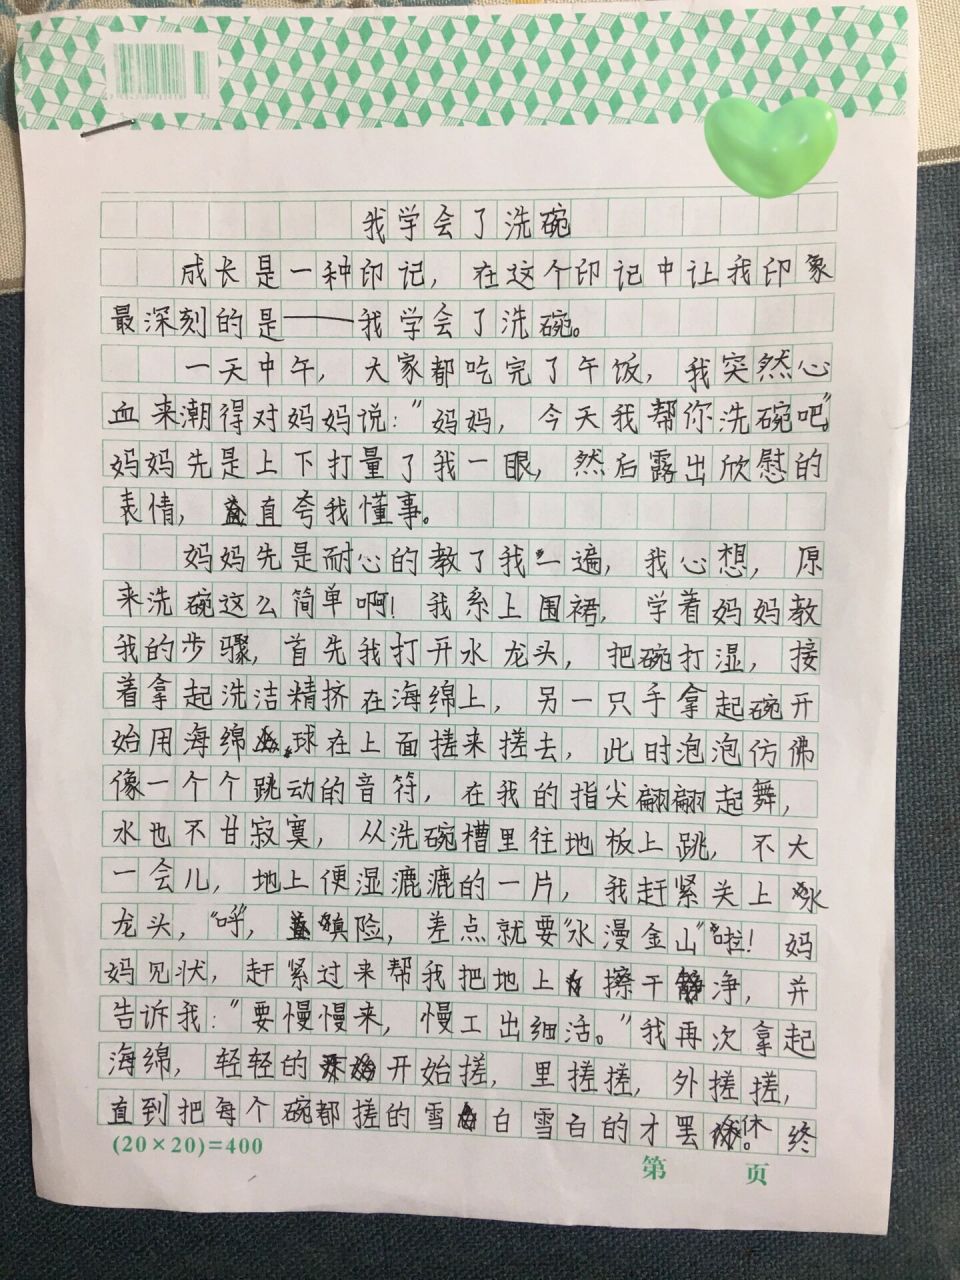 我学会了洗碗
成长是一种印记，在这个印记中让我印象
最深刻的是——我学会了洗碗。
一天中午，大家都吃完了午饭，我突然心
血来潮得对妈妈说：“妈妈，今天我帮你洗碗吧”
妈妈先是上下打量了我一眼，然后露出欣慰的
表情，直夸我懂事。
妈妈先是耐心的教了我一遍，我心想，原
来洗碗这么简单啊！我系上围裙，学着妈妈教
我的步骤，首先我打开水龙头，把碗打湿，接
着拿起洗洁精挤在海绵上，另一只手拿起碗开
始用海绵球在上面搓来搓去，此时泡泡仿佛
像一个个跳动的音符，在我的指尖翩翩起舞，
水也不甘寂寞，从洗碗槽里往地板上跳，不大
一会儿，地上便湿漉漉的一片，我赶紧关上水
龙头，“呼”，真险，差点就要“水漫金山”啦！妈
妈见状，赶紧过来帮我把地上擦干净，并
告诉我：“要慢慢来，慢工出细活。”我再次拿起
海绵，轻轻的开始搓，里搓搓，外搓搓，
直到把每个碗都搓的雪白雪白的才罢休。终
(20×20)=400
第 页